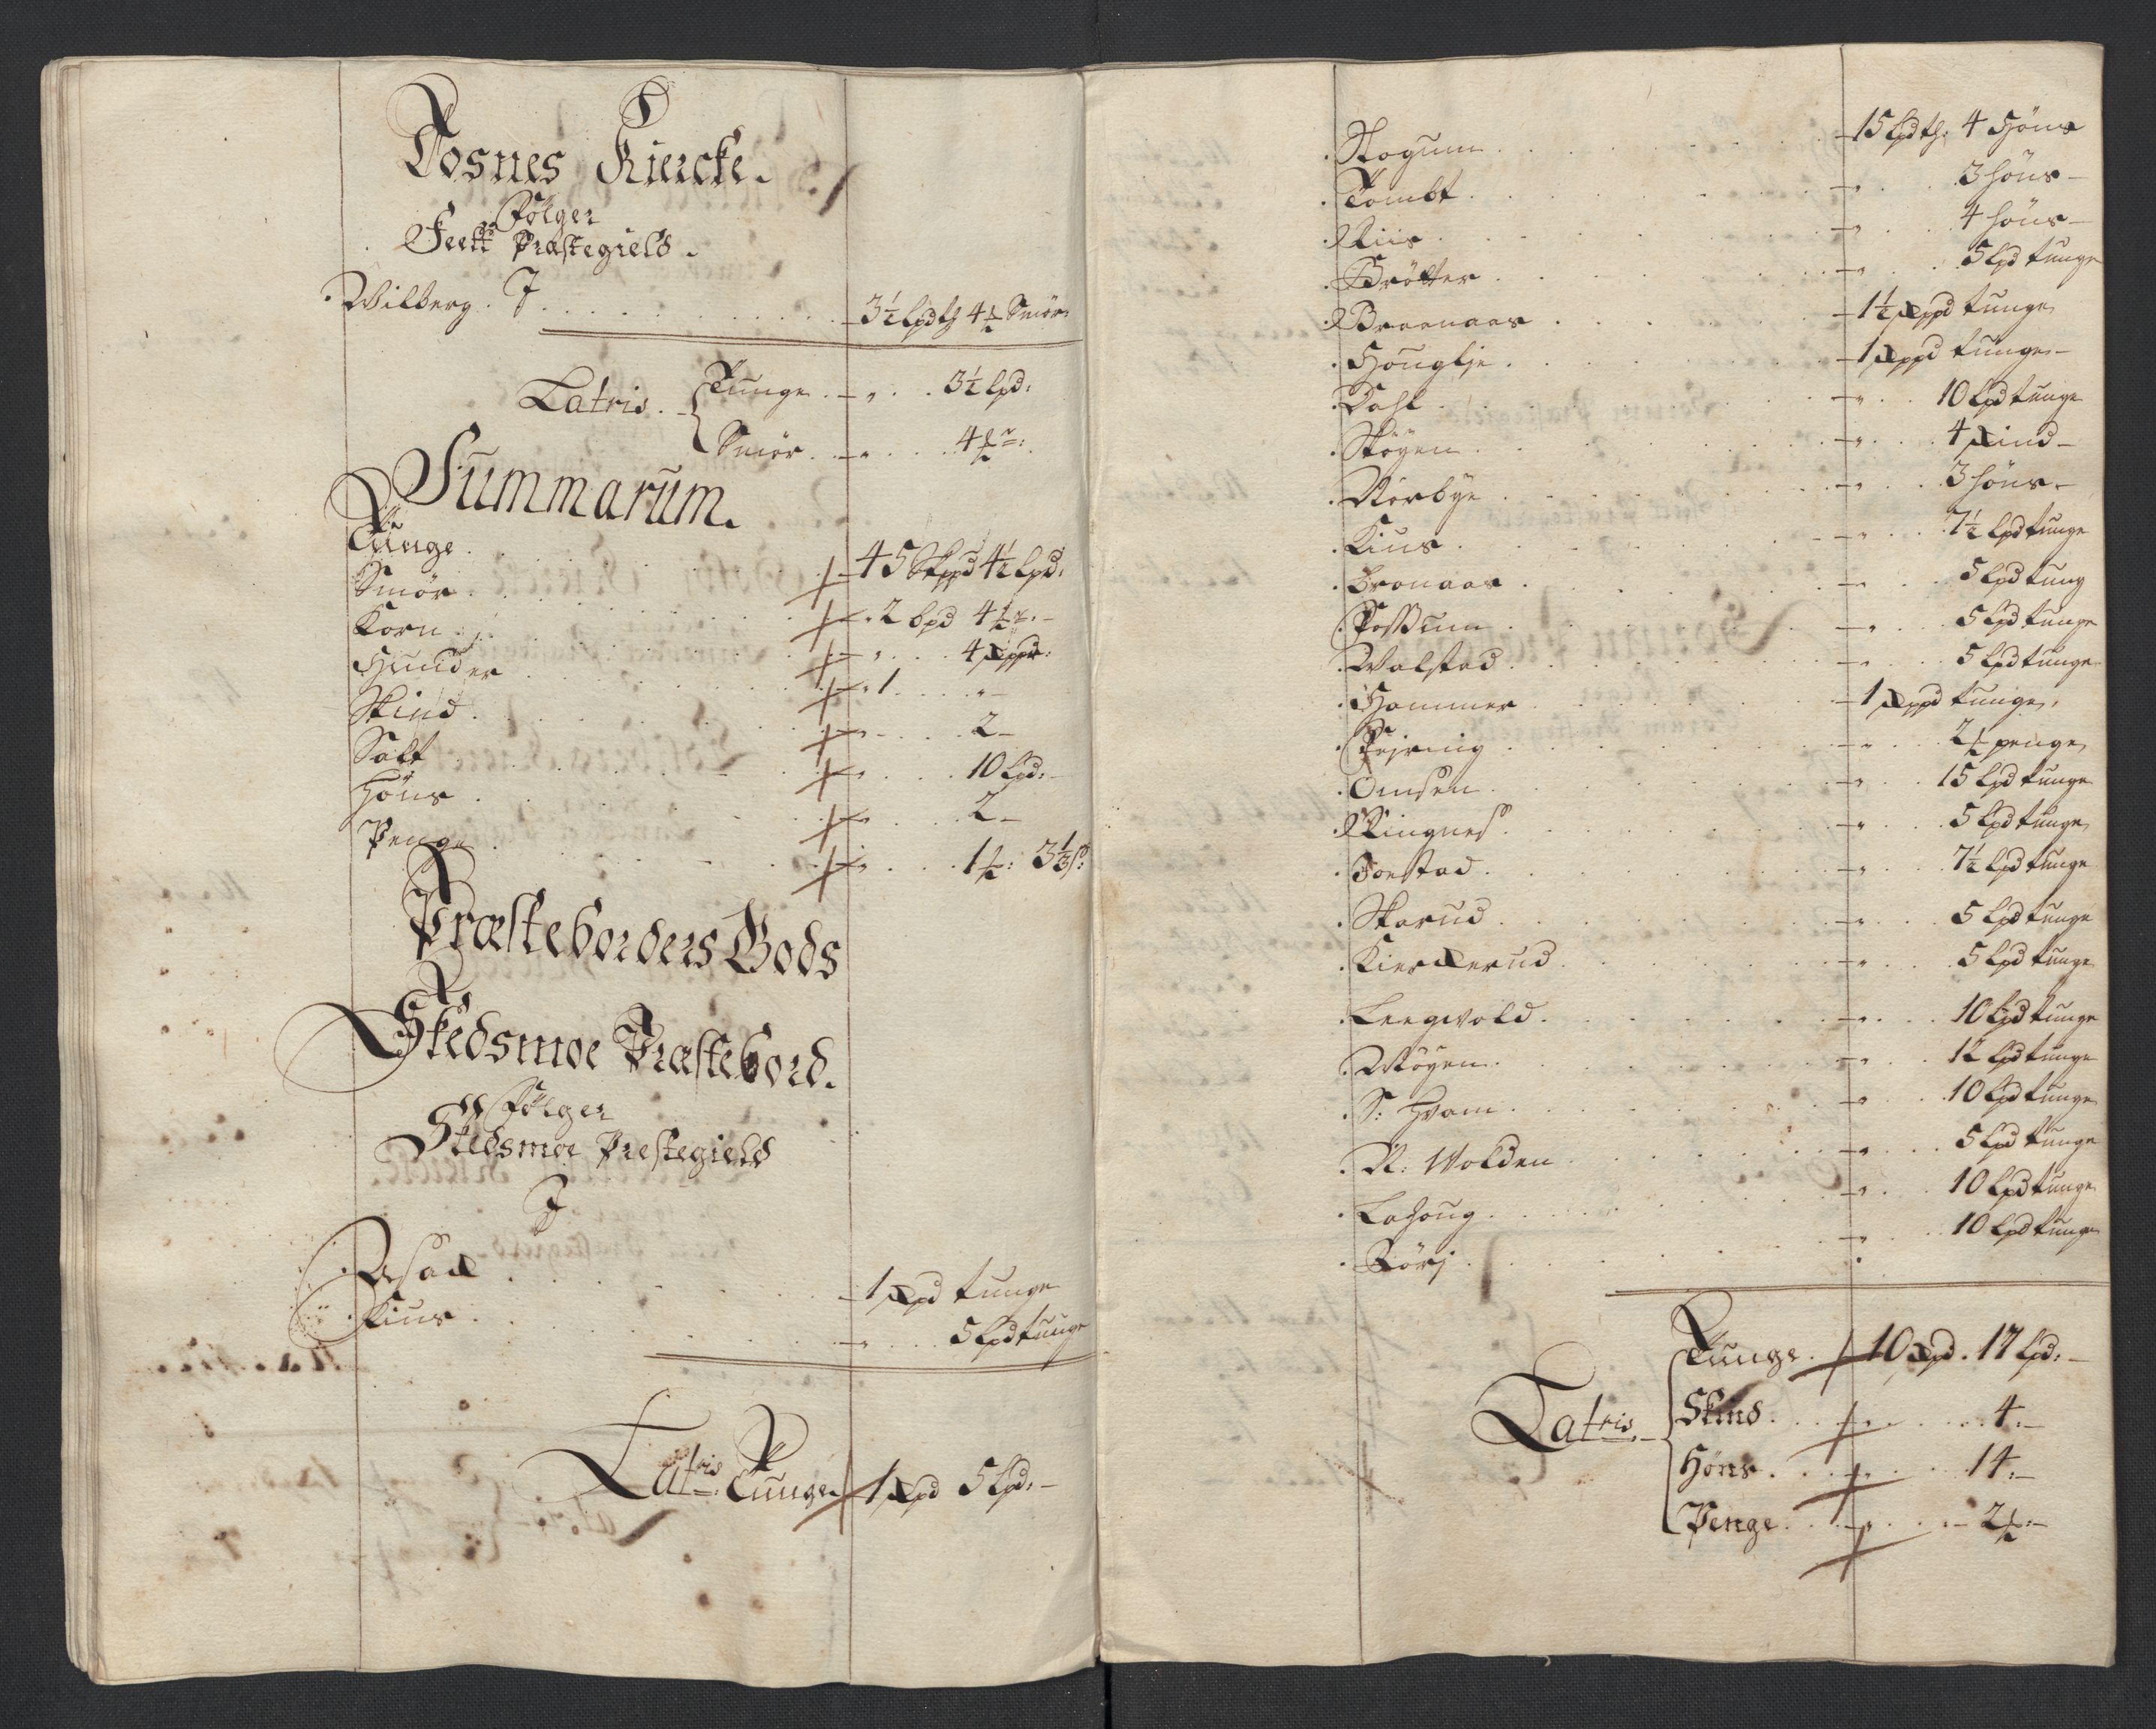 Tosnes Kiercke.
Følger
Feett Præstegield.
I
Wilberg . . . 3½ lpd tg 4 ℔ Smør
Latris. Tunge . . 3½ lpd:
Smør . . 4 ℔
Summarum.
Tunge . . . 45 Skppd 4½ lpd:
Smør . . . 2 bpd 4 ℔
Korn . . . 4 Sippd:
Hunder . . . 1 . . „
Skind . . . 2 –
Salt . . . 10 lpd: –
Høns . . . 2 –
Penge . . . 1 ℔: 3⅓ ß:
Præsteborders Gods
Skedsmoe Præstebord.
Følger
Skedsmoe Prestegield
I
Asack . . . 1 Skpd tunge
Kius . . . 5 lpd tunge
Latris Tunge 1 Skpd 5 lpd: –
Rogum . . . 15 lpd tg: 4 Høns
Tombt . . . 3 høns –
Riis . . . 4 høns –
Brøtter . . . 5 lpd tunge
Braanaas . . . 1½ Skppd tunge
Houglje . . . 1 Skppd tunge –
Dahl . . . 10 lpd tunge
Skøyen . . . 4 Skind –
Nørbye . . . 3 høns –
Kius . . . 7½ lpd tunge
Bronaas . . . 5 lpd tung
. . . 5 lpd tunge
Walstad . . . 5 lpd tunge
Hammer . . . 1 Skppd tunge,
. . . 2 ℔ penge
Omsen . . . 15 lpd tunge
Ringnes . . . 5 lpd tunge
Joestad . . . 7½ lpd tunge
Skarud . . . 5 lpd tunge
Kierckerud . . . 5 lpd tunge
Leegwold . . . 10 lpd tunge
Møyen . . . 12 lpd tunge
S: Hvam . . . 10 lpd tunge
N: Wolden . . . 5 lpd tunge
Lahoug . . . 10 lpd tunge
Børj . . . 10 lpd tunge
Latris. Tunge . 10 Skpd . 17 lpd: –
Skind . . . 4: –
Høns . . . 14: –
Penge . . . 2 ℔: –